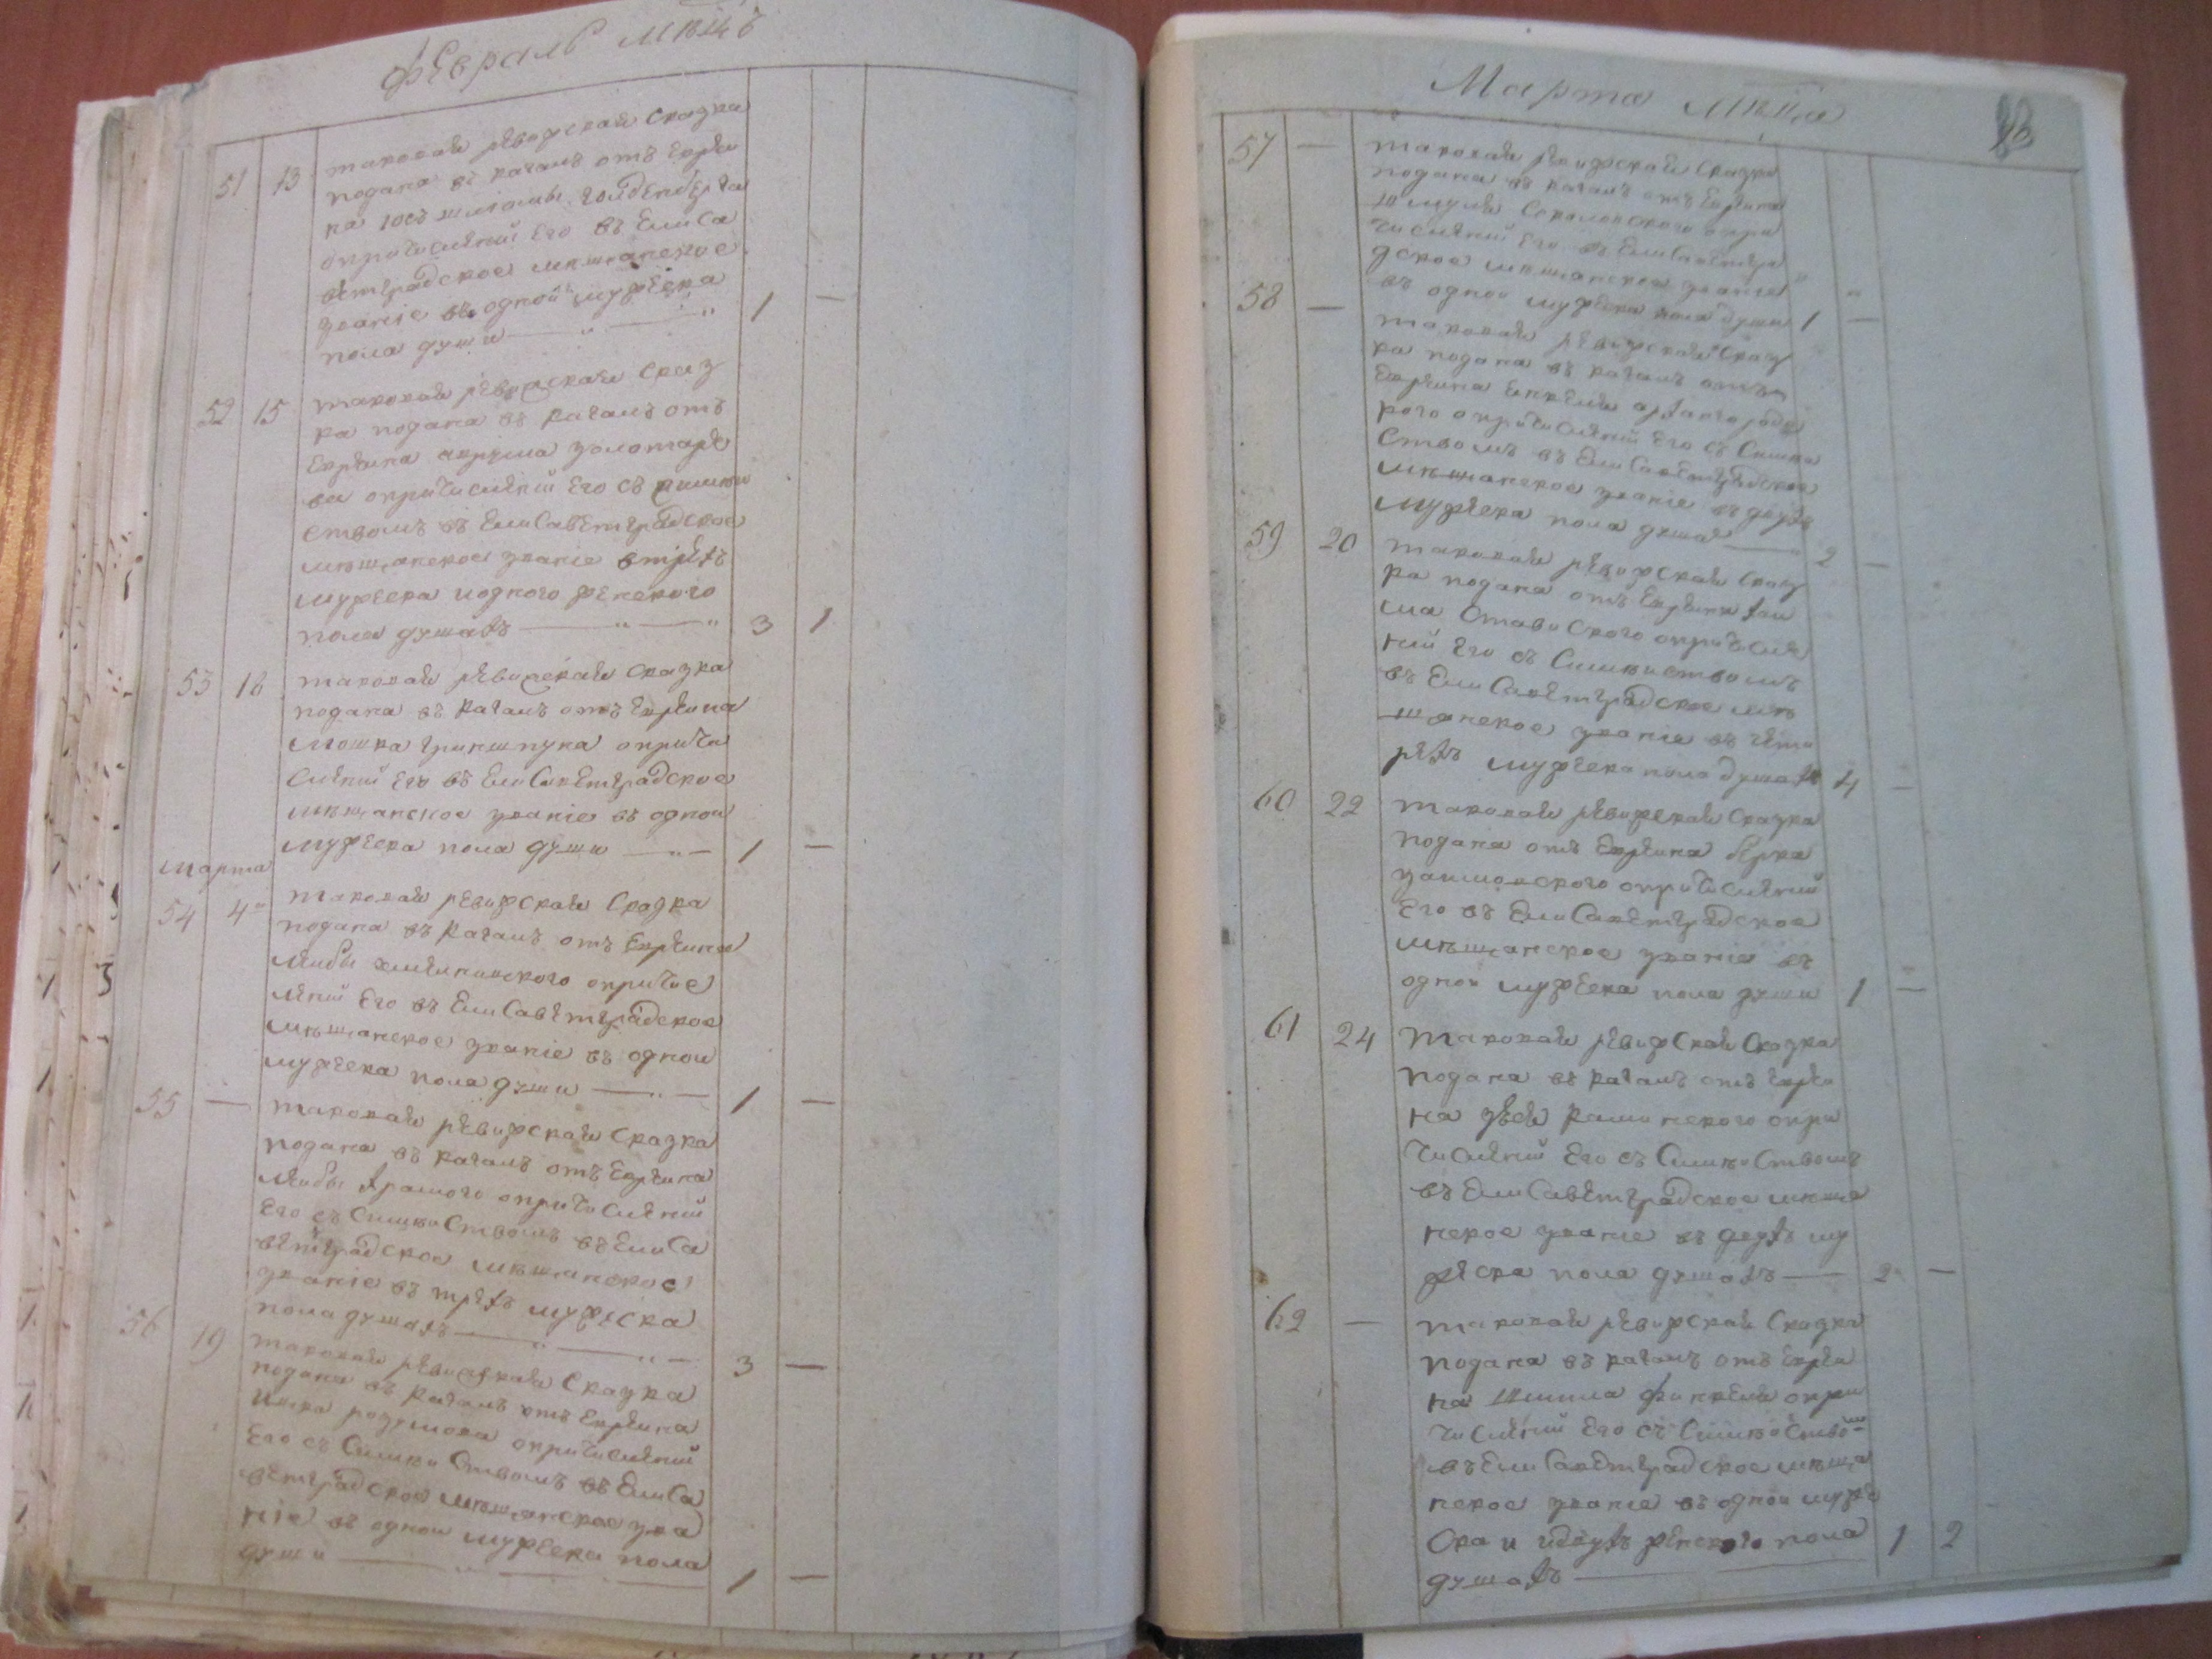 Февраль мѣцъ
51 13 таковая ревизская сказка
подана въ кагалъ отъ еврея
на Іось шліомы Голденберга
опричисленіи его въ Елиса
ветградское мѣщанское
званіе въ одной мужеска
пола души — " — " 1 —
52 15 таковая ревизская сказ
ка подана въ кагалъ отъ
евреина золотаре
ва опричисленіи его съ
ствомъ въ Елисаветградское
мѣщанское званіе втрехъ
мужеска иодного женского
пола душахъ — " — " 3 1
53 18 таковая ревизская сказка
подана въ кагалъ отъ евреина
Мошка Гриншпуна опричи
сленіи его въ Елисаветградское
мѣщанское званіе въ одной
мужеска пола души — " — 1 —
Марта
54 4 таковая ревизская сказка
подана въ кагалъ отъ евреина
Лейбы опричис
леніи его въ Елисаветградское
мѣщанское званіе въ одной
мужеска пола души — " — 1 —
55 — таковая ревизская сказка
подана въ кагалъ отъ евреина
Лейбы Храмого опричисленіи
его съ семействомъ въ Елиса
ветградское мѣщанское
званіе въ трехъ мужеска
пола душахъ — " — " — 3 —
56 19 таковая ревизская сказка
подана въ кагалъ отъ евреина
Ицка Розумова опричисленіи
его съ семействомъ въ Елиса
ветградское мѣщанское зва
ніе въ одной мужеска пола
души — " — — 1 —
Марта мѣца
57 — таковая ревизская сказка
подана въ кагалъ отъ евреина
Шмуля Соколовского опри
численіи его въ Елисаветгра
дское мѣщанское званіе
въ одной мужеска пола души 1 —
58 — таковая ревизская сказ
ка подана въ кагалъ отъ
евреина
кого опричисленіи его съ семей
ствомъ въ Елисаветградское
мѣщанское званіе въ двухъ
мужеска пола душах — 2 —
59 20 таковая ревизская сказ
ка подана отъ евреина Хаи
ма Ставиского опричисле
ніи его съ семействомъ
въ Елисаветградское мѣ
щанское званіе въ четы
рехъ мужеска пола душахъ 4 —
60 22 таковая ревизская сказка
подана отъ евреина Берка
Заславского опричисленіи
его въ Елисаветградское
мѣщанское званіе въ
одной мужеска пола души 1 —
61 24 таковая ревизская сказка
подана въ кагалъ отъ еврея
на опри
численіи его съ семействомъ
въ Елисаветградское мѣща
нское званіе въ двухъ му
жеска пола душахъ — 2 —
62 — таковая ревизская сказка
подана въ кагалъ отъ еврея
на Шлиома Финкеля опри
численіи его съ семейство
въ Елисаветградское мѣща
нское званіе въ одной муже
ска и удвухъ женского пола 1 2
душахъ —